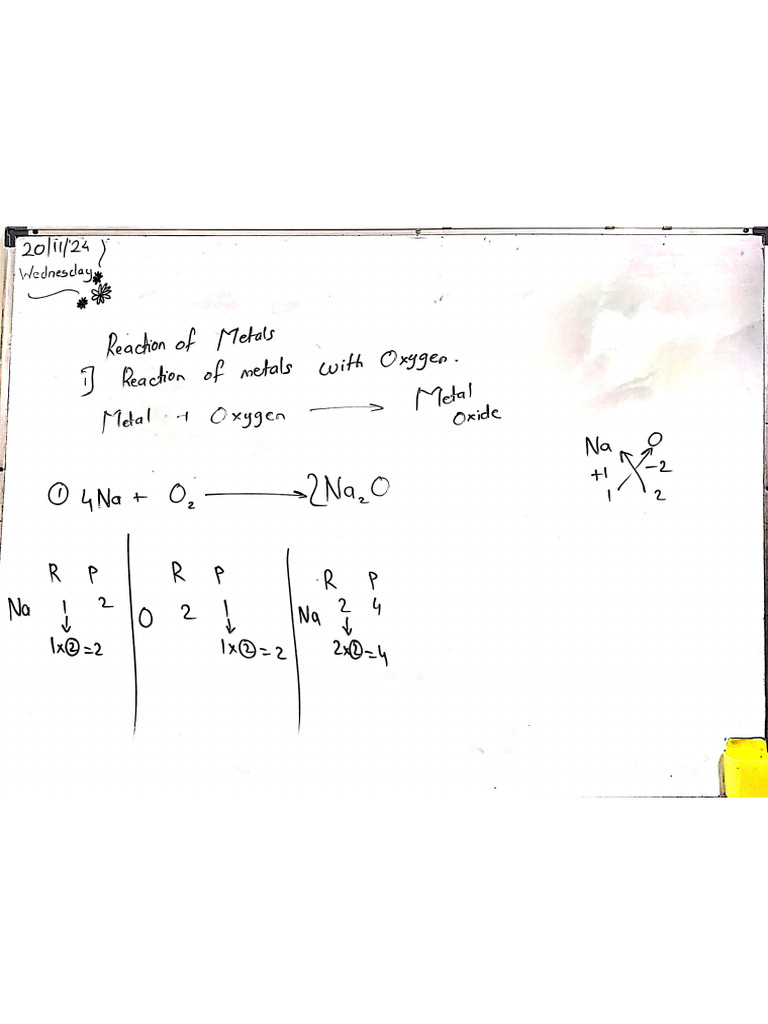 20/11/'24
Wednesday
Reaction of Metals
1] Reaction of metals with Oxygen.
Metal + Oxygen ⟶ Metal Oxide
① 4Na + O₂ ⟶ 2Na₂O
Na O
+1 -2
1 2
R P
Na 1 2
↓
1x②=2
R P
O 2 1
↓
1x②=2
R P
Na 2 4
↓
2x②=4